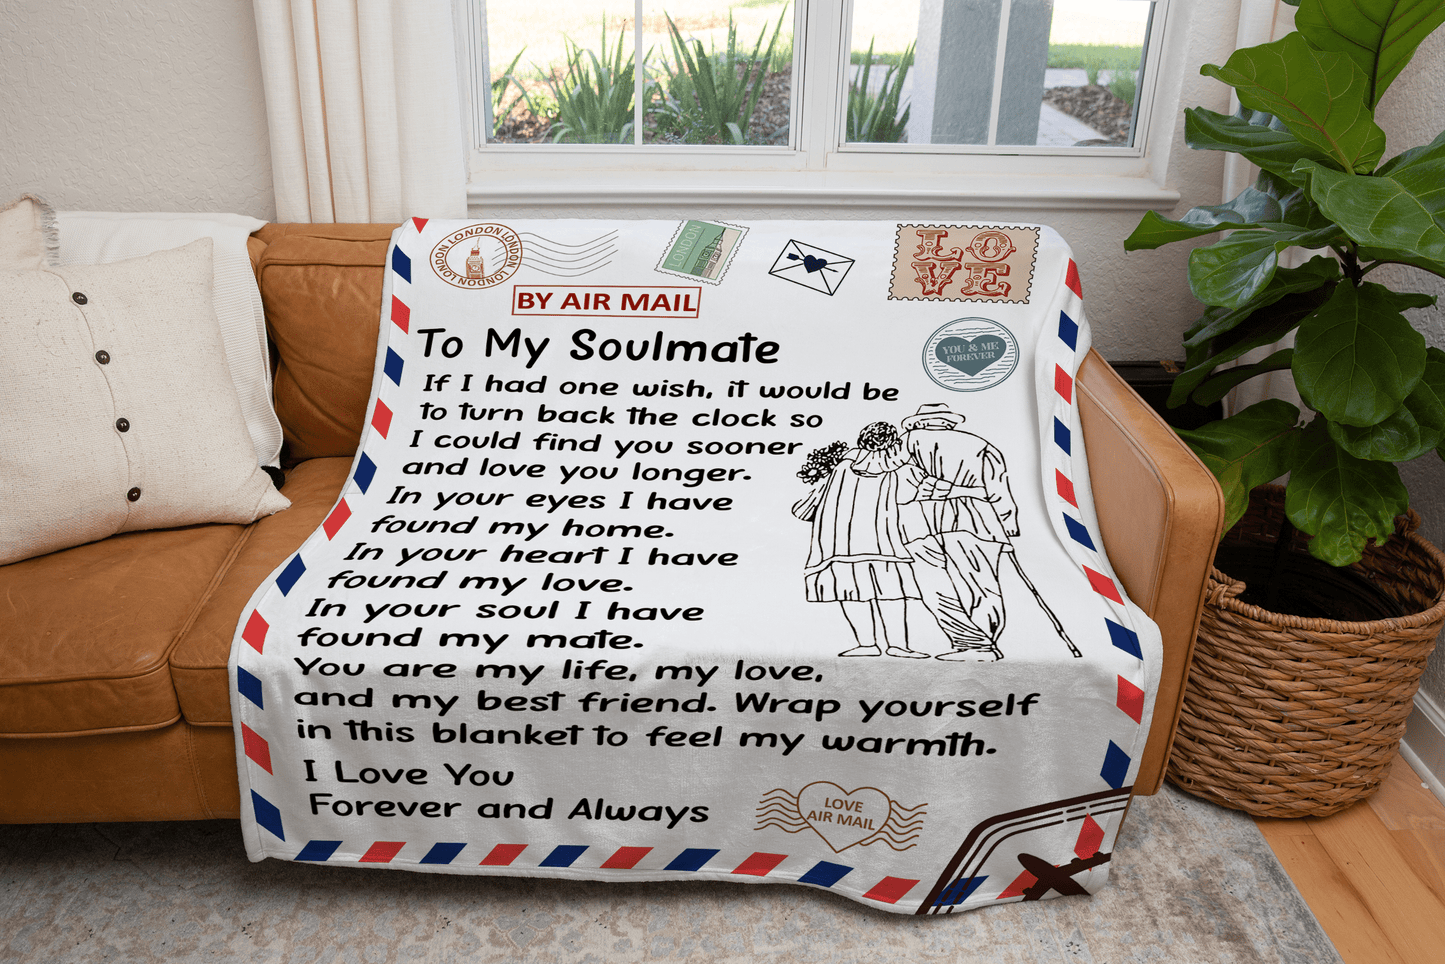 LONDON LONDON LONDON LONDON
LONDON
LOVE
BY AIR MAIL
To My Soulmate
YOU & ME
FOREVER
If I had one wish, it would be
to turn back the clock so
I could find you sooner
and love you longer.
In your eyes I have
found my home.
In your heart I have
found my love.
In your soul I have
found my mate.
You are my life, my love,
and my best friend. Wrap yourself
in this blanket to feel my warmth.
I Love You
Forever and Always
LOVE
AIR MAIL